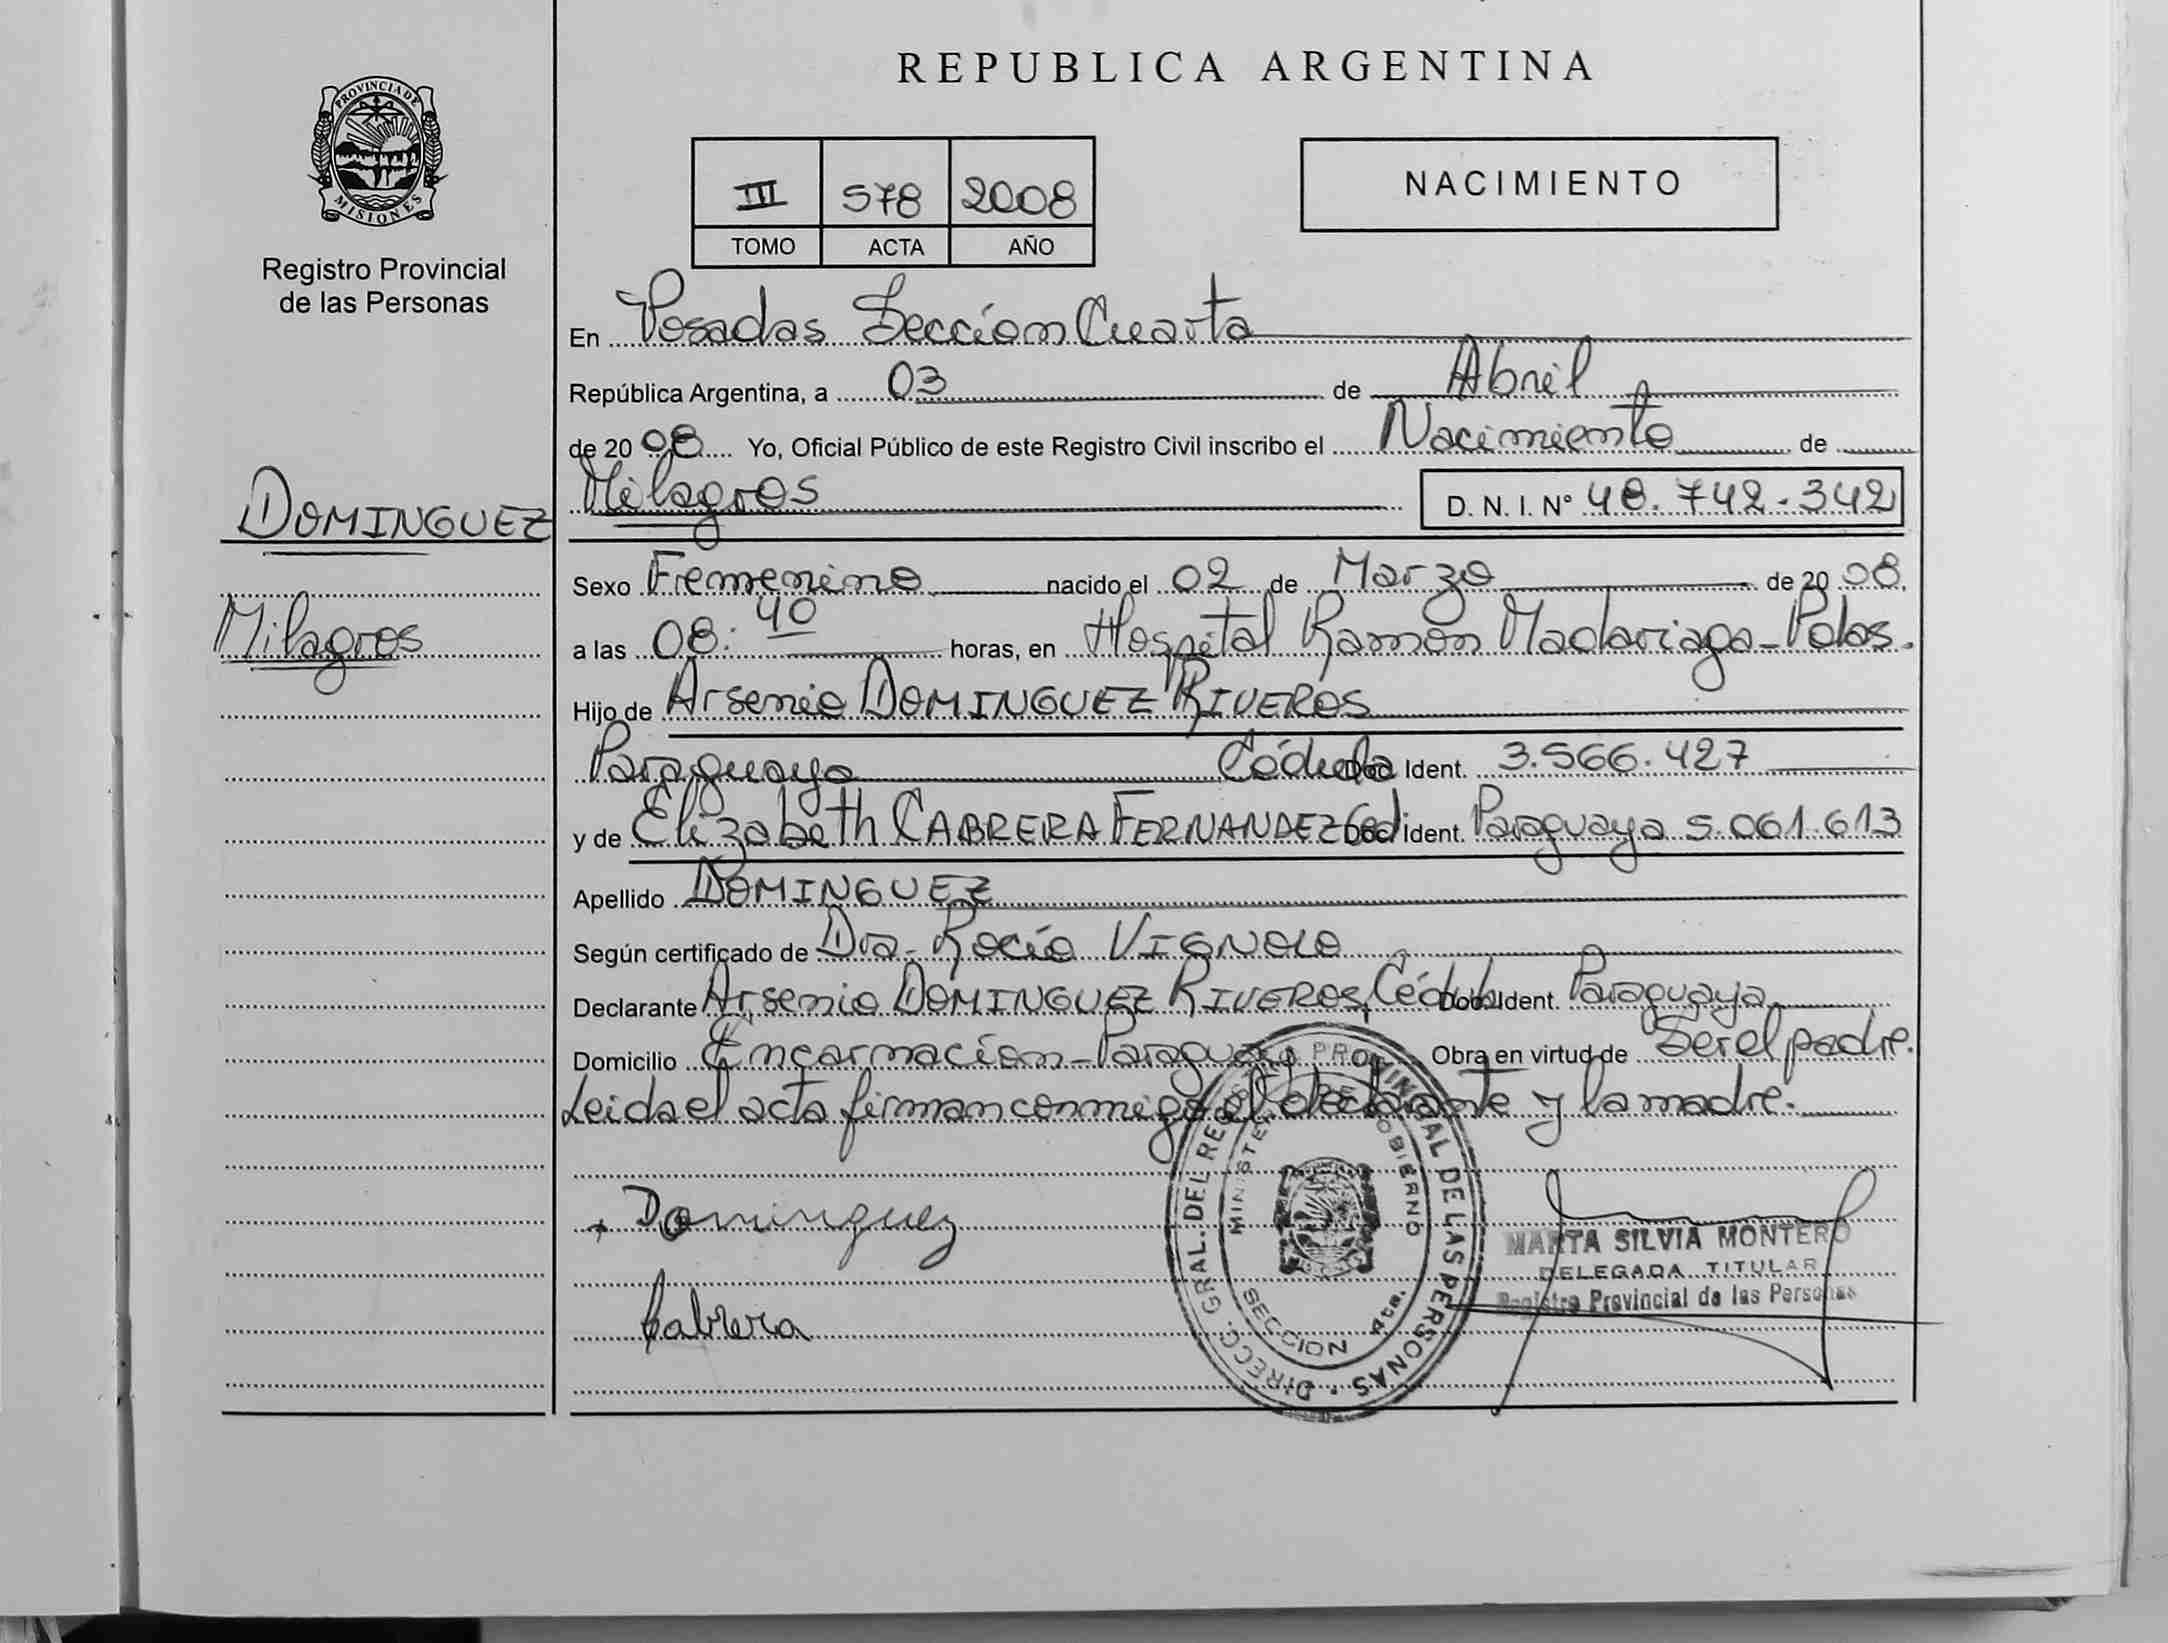 REPUBLICA ARGENTINA
PROVINCIA DE MISIONES
Registro Provincial
de las Personas
III 578 2008
TOMO ACTA AÑO
NACIMIENTO
En Posadas Sección Cuarta
República Argentina, a 03 de Abril
de 20 08 Yo, Oficial Público de este Registro Civil inscribo el Nacimiento de
DOMINGUEZ
Milagros
Milagros D. N. I. N° 48.742.342
Sexo Femenino nacido el 02 de Marzo de 20 08.
a las 08:40 horas, en Hospital Ramón Madariaga-Pdas.
Hijo de Arsenio DOMINGUEZ RIVEROS
Paraguaya Cédula Doc. Ident. 3.566.427
y de Elizabeth CABRERA FERNANDEZ Céd Doc. Ident. Paraguaya 5.061.613
Apellido DOMINGUEZ
Según certificado de Dra. Rocío VIGNOLO
Declarante Arsenio DOMINGUEZ RIVEROS, Cédula Doc. Ident. Paraguaya
Domicilio Encarnación-Paraguay Obra en virtud de Ser el padre.
Leida el acta firman conmigo el declarante y la madre.
Dominguez
Cabrera
DIRECC. GRAL. DEL REGISTRO PROVINCIAL DE LAS PERSONAS
MINISTERIO DE GOBIERNO
SECCION 4ta.
MARTA SILVIA MONTERO
DELEGADA TITULAR
Registro Provincial de las Personas